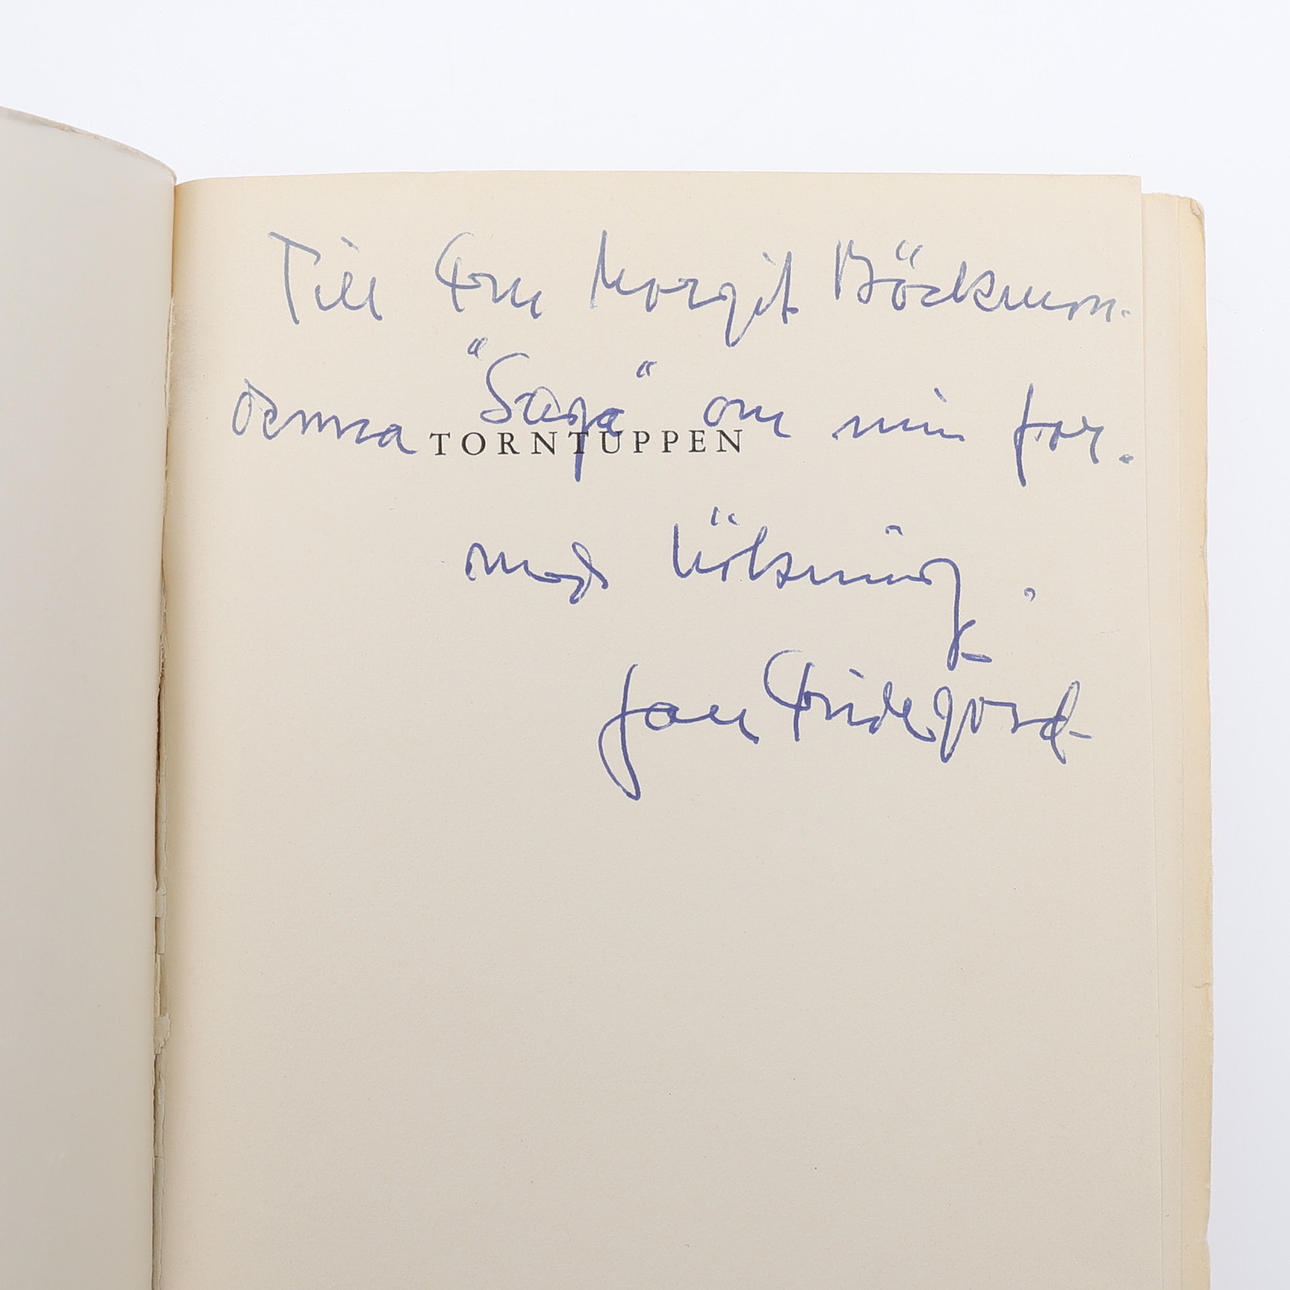 Till Fru Margit Böckman.
denna "Saga" om min far.
TORNTUPPEN
med hälsning.
Jan Fridegård